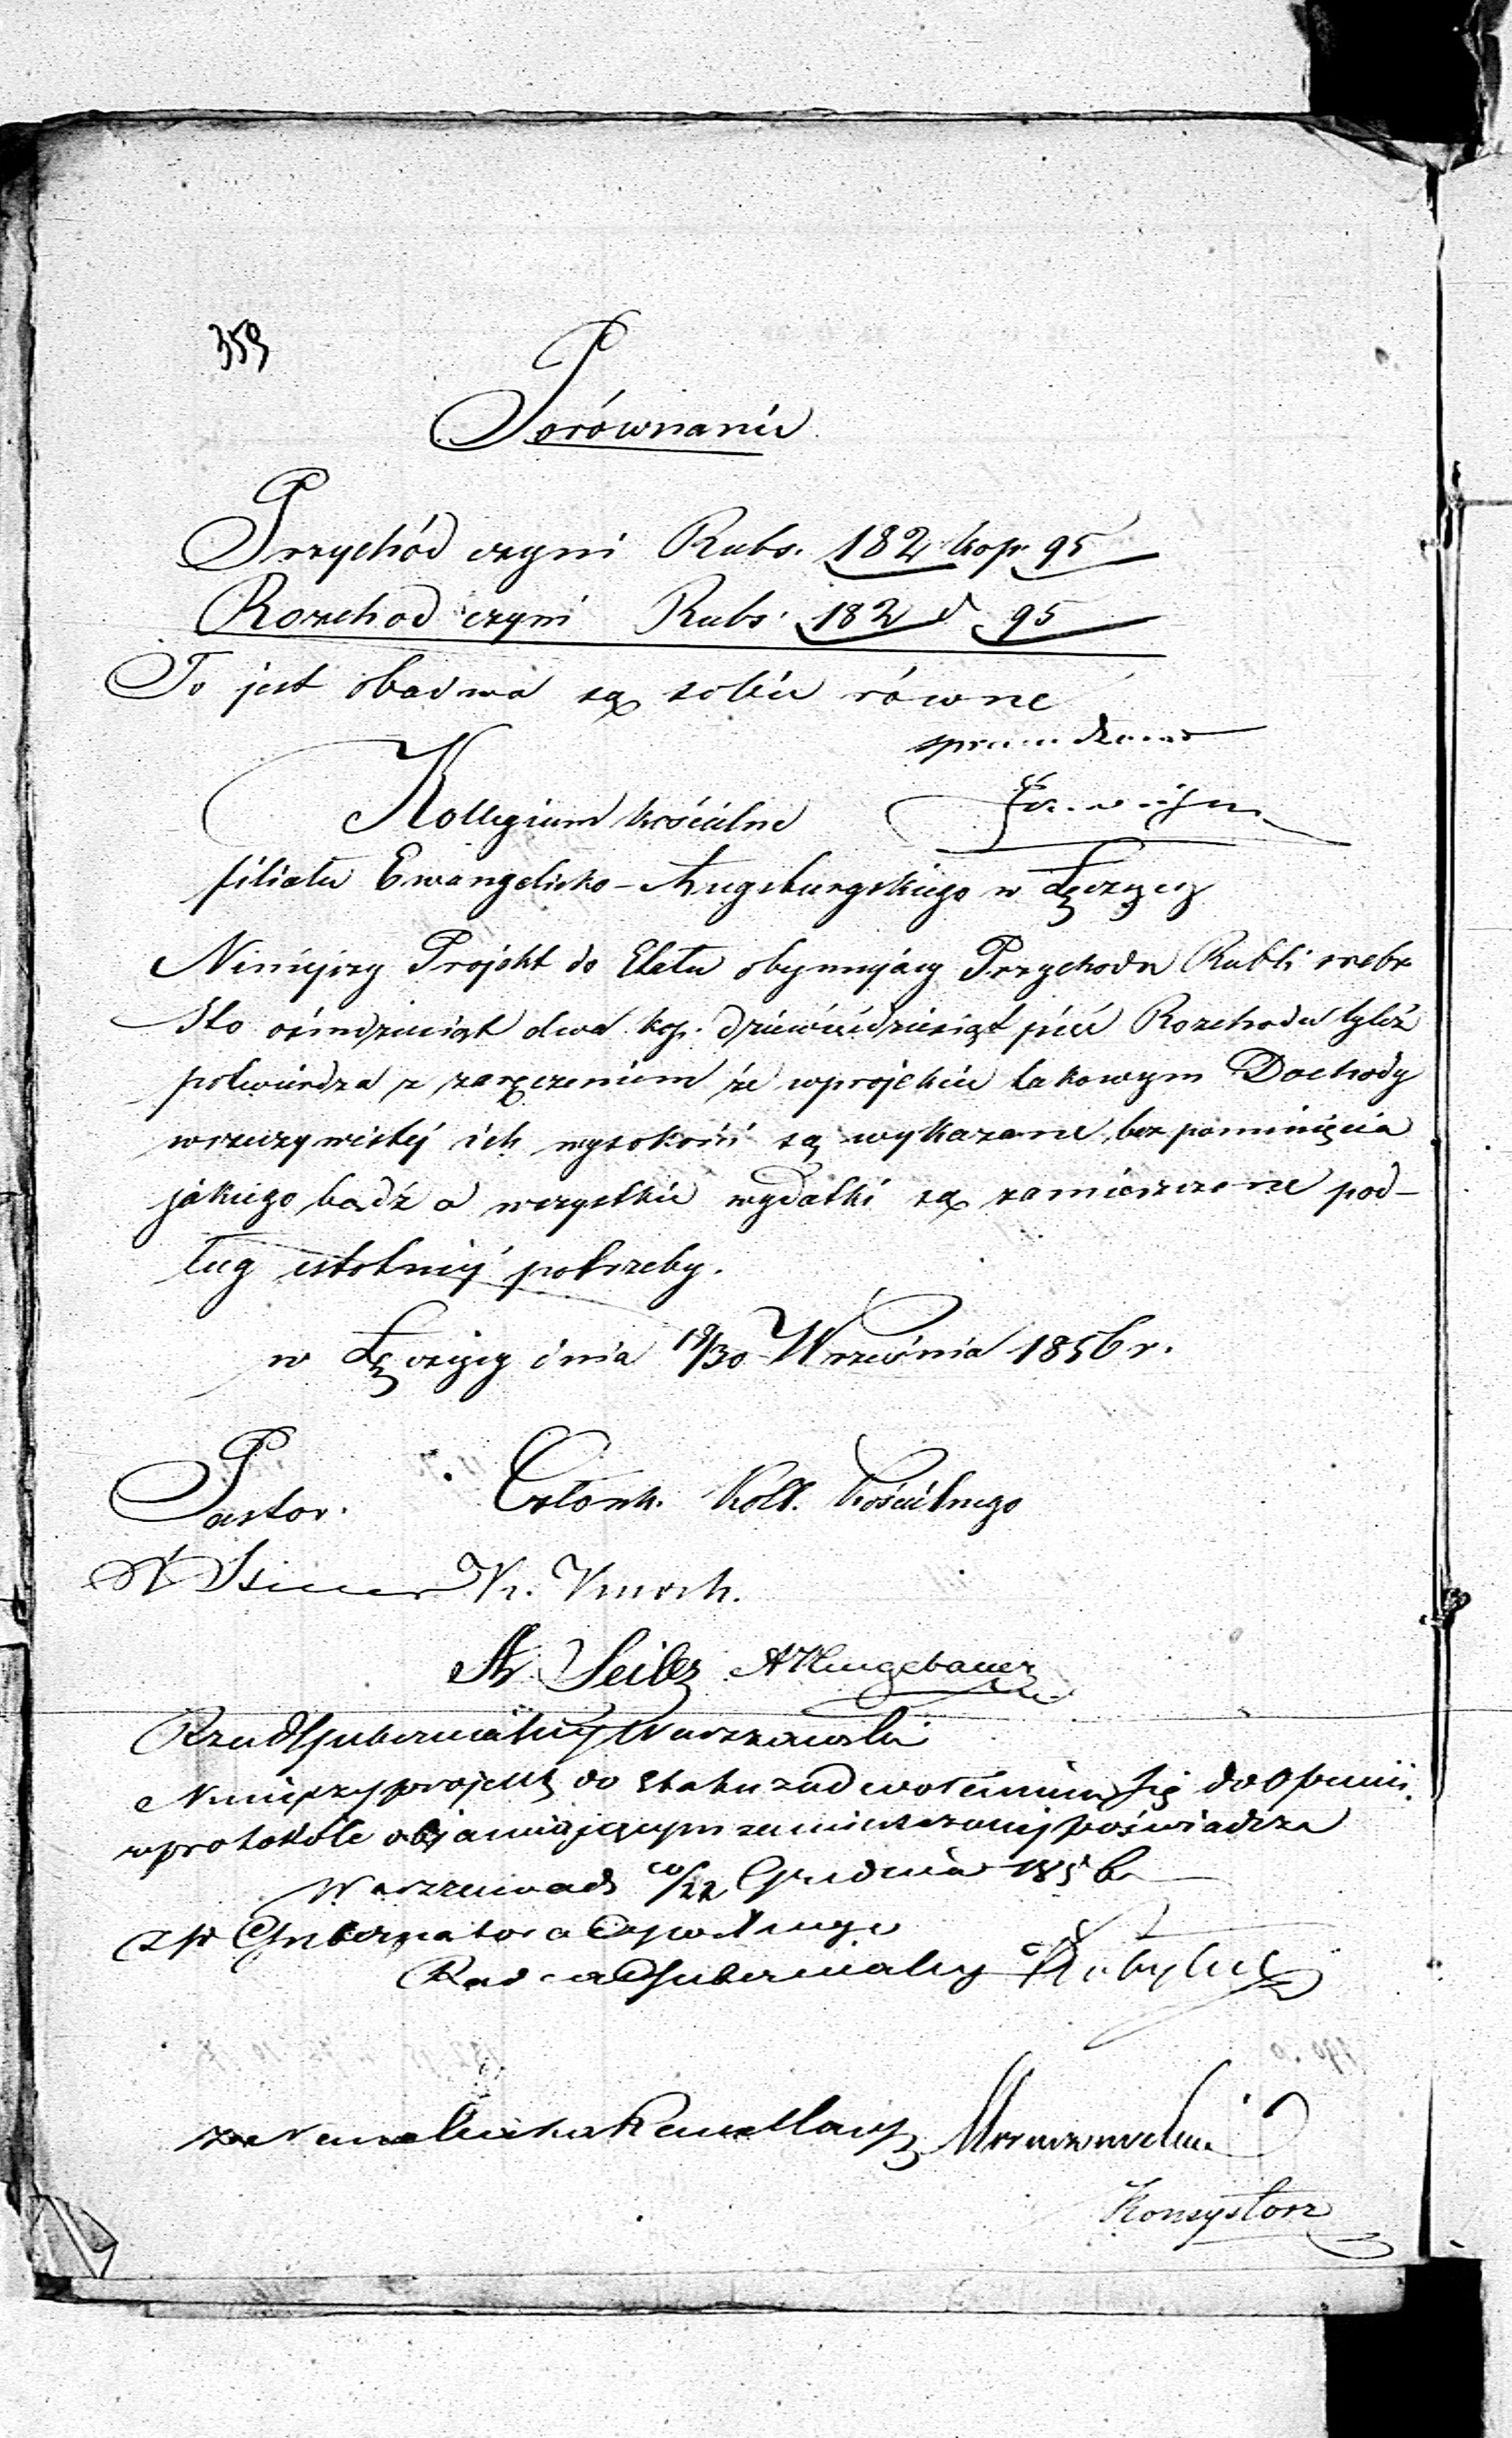 359
Porównanie
Przychód czyni Rubs. 182 kop. 95
Rozchod czyni Rubs. 182 d 95
To jest obadwa są sobie równe
sprawdzono
Kollegium kościelne
filiału Ewangelicko-Augsburgskiego w Łęczycy
Niniejszy Projekt do Etatu obejmujący Przychodu Rubli srebr
Sto ośmdziesiąt dwa kop. dziewiećdziesiąt pieć Rozchodu tyleż
potwierdza z zaręczeniem że wprojekcie takowym Dochody
wrzeczywistej ich wysokości są wykazane, bez pominięcia
jakiego bądź a wszystkie wydatki są zamieszczone pod-
ług istotnéj potrzeby.
w Łęczycy dnia 18/30 Września 1856 r.
Pastor. Członk. Koll. Kościelnego
K. Knoch.
Seiler
Rząd Gubernialny Warszawski
Niniejszy projekt do Etatu z odwołaniem się do Opinii
wprotokole objaśniającym zamieszczonej poświadcza
Warszawa d. 10/22 Grudnia 1856
z p Gubernatora Cywilnego
Radca Gubernialny
za Naczelnika Kancellaryi
Konsystorz